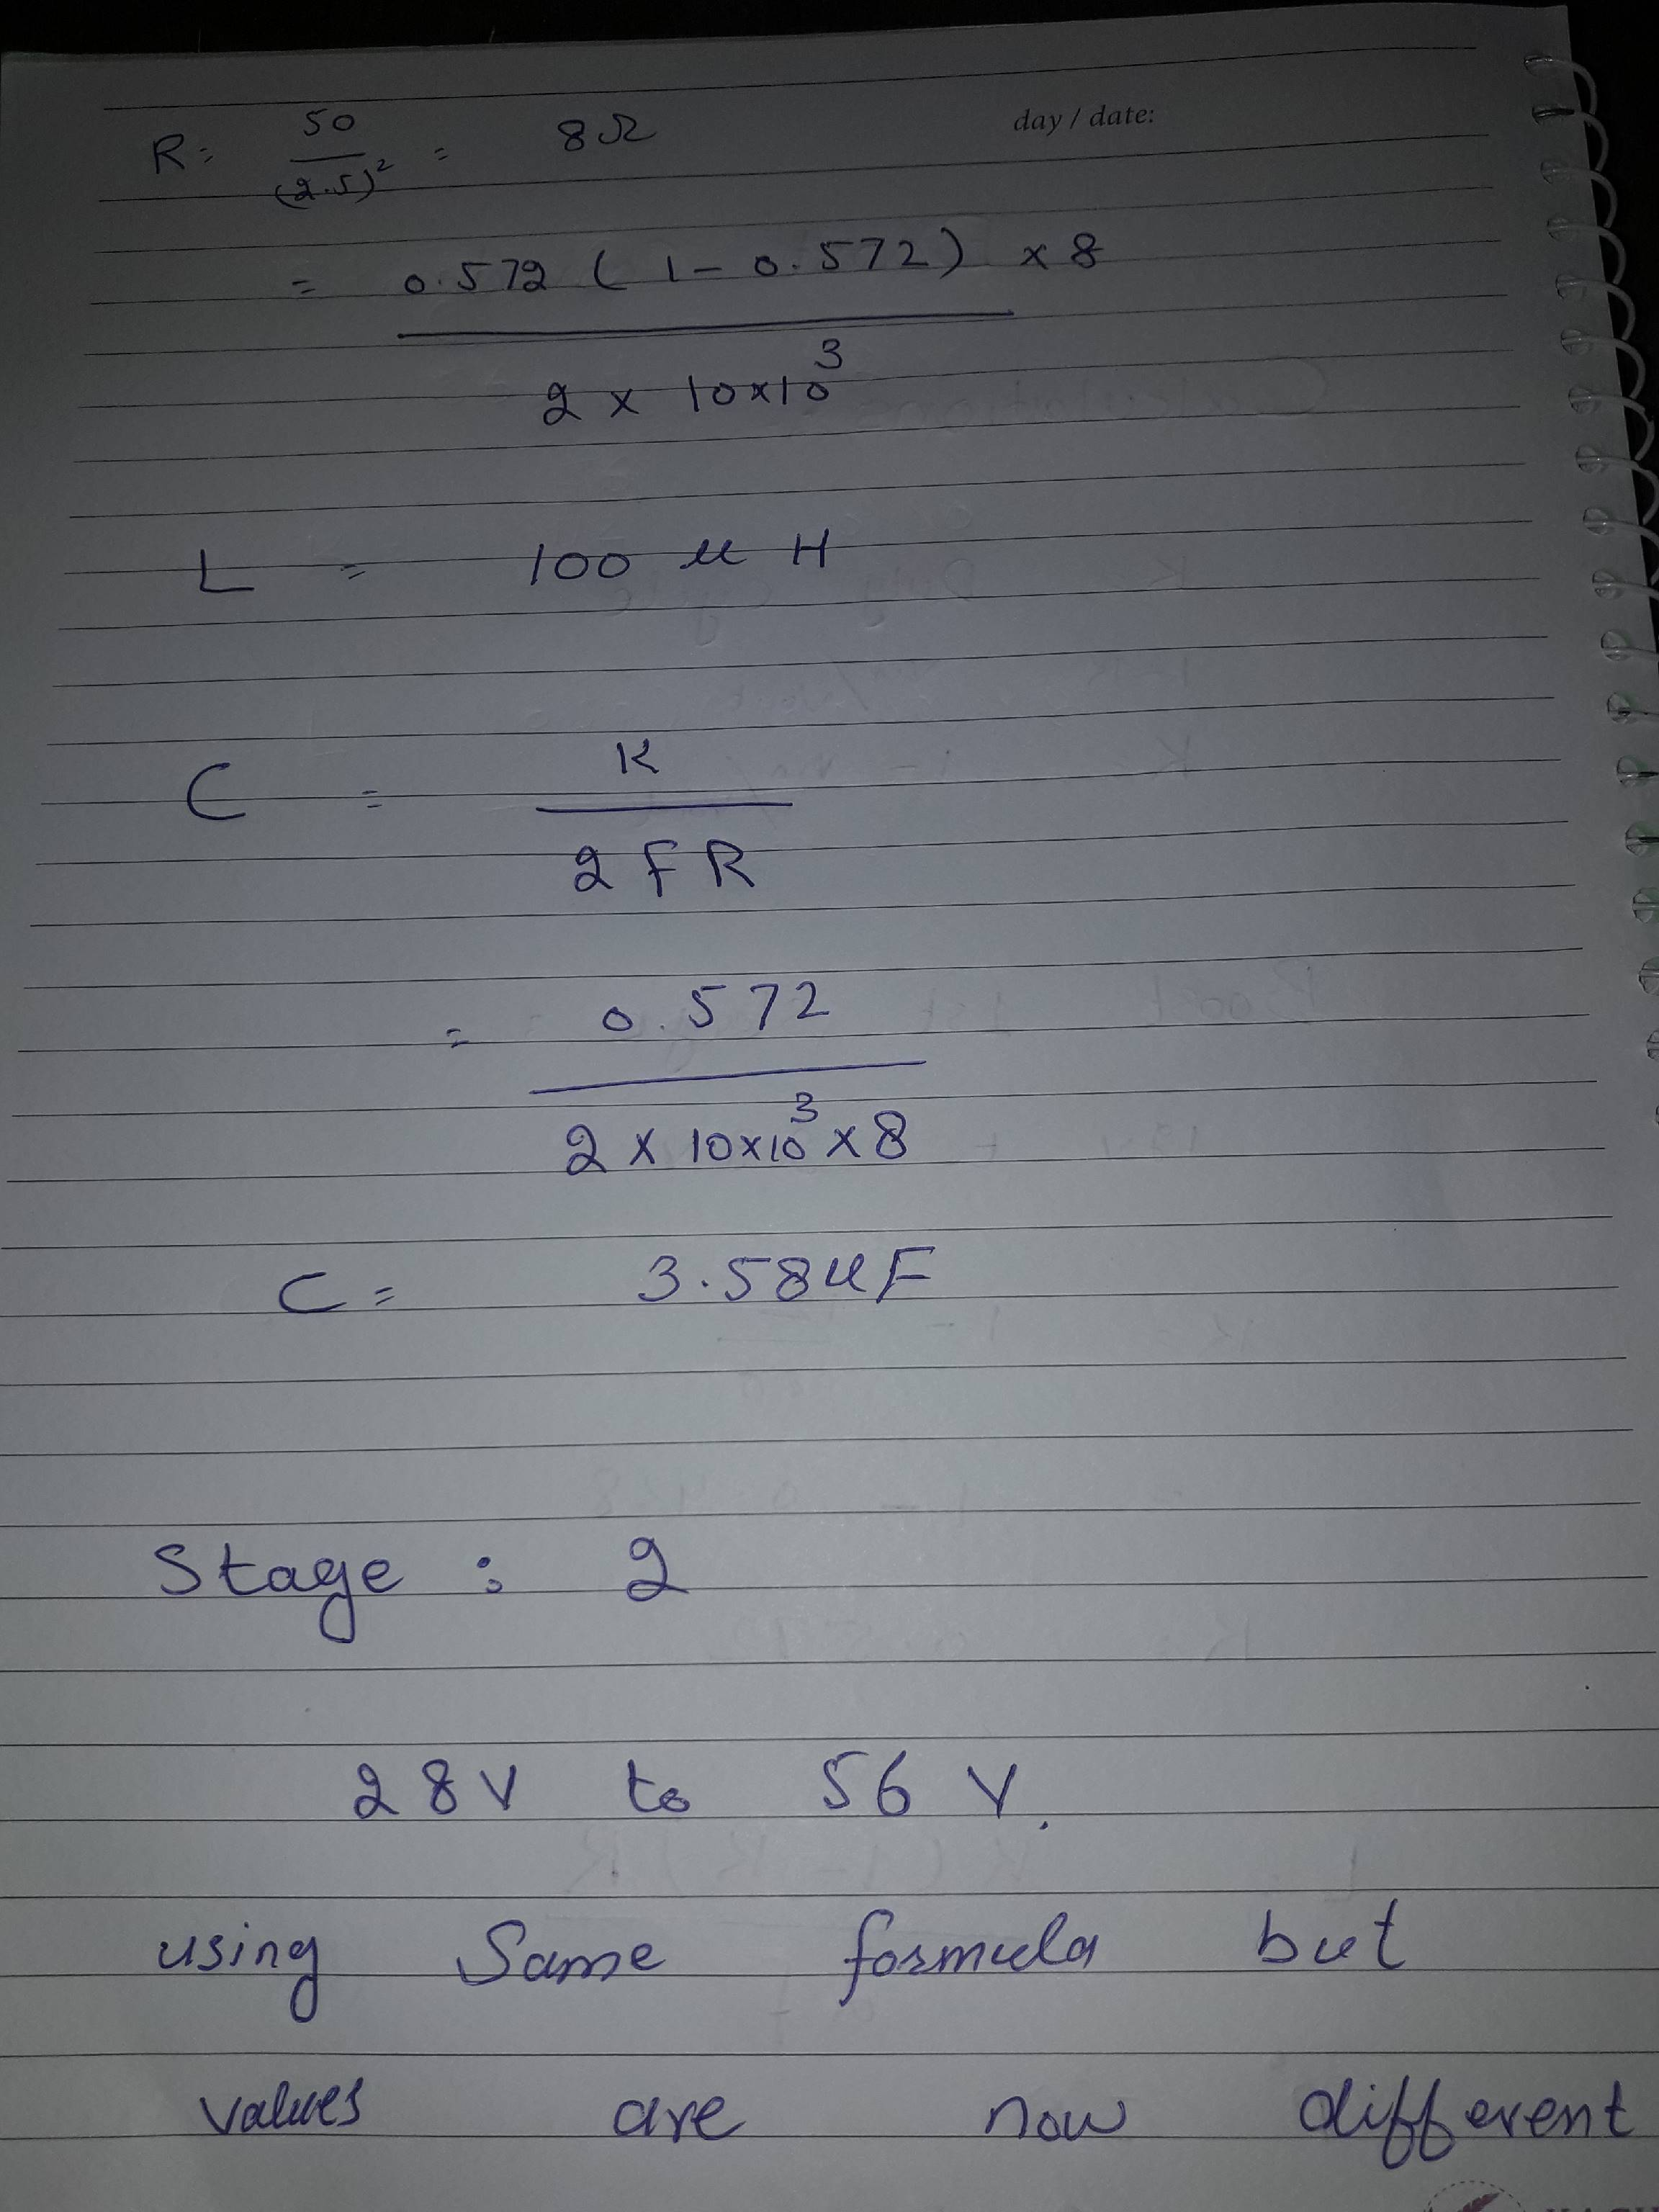 day / date:
R = 50 / (2.5)² = 8Ω
= 0.572 ( 1 - 0.572 ) x 8 / 2 x 10x10³
L = 100 u H
C = K / 2 F R
= 0.572 / 2 x 10x10³ x 8
C = 3.58uF
Stage : 2
28V to 56 V.
using Same formula but
values are now different